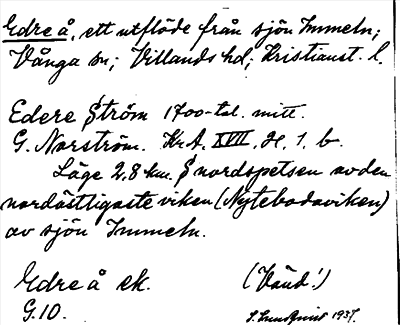 Edre å, ett utflöde från sjön Immeln;
Vånga sn; Villands hd; Kristianst. l.
Edere Ström 1700-tal. mitt.
G. Norström. Kr.A. XVII, H, 1, b.
Läge 2,8 km. S nordspetsen av den
nordöstligaste viken (Nytebodaviken)
av sjön Immeln.
Edre å ek. (Vånd!)
G.10. 1937.